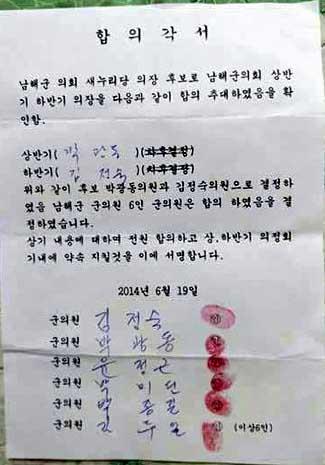 합 의 각 서
남해군 의회 새누리당 의장 후보로 남해군의회 상반
기 하반기 의장을 다음과 같이 합의 추대하였음을 확
인함.
상반기( 박 광 동 )(차후결정)
하반기( 김 정숙 )(차후결정)
위와 같이 후보 박광동의원과 김정숙의원으로 결정하
였음 남해군 군의원 6인 군의원은 합의 하였음을 결
정하였습니다.
상기 내용에 대하여 전원 합의하고 상,하반기 의정회
기내에 약속 지킬것을 이에 서명합니다.
2014년 6월 19일
군의원 김 정숙 ㊞
군의원 박 광 동 ㊞
군의원 윤 정 근 ㊞
군의원 박 미 선 ㊞
군의원 박 종 길 ㊞
군의원 김 두 일 ㊞ (이상6인)